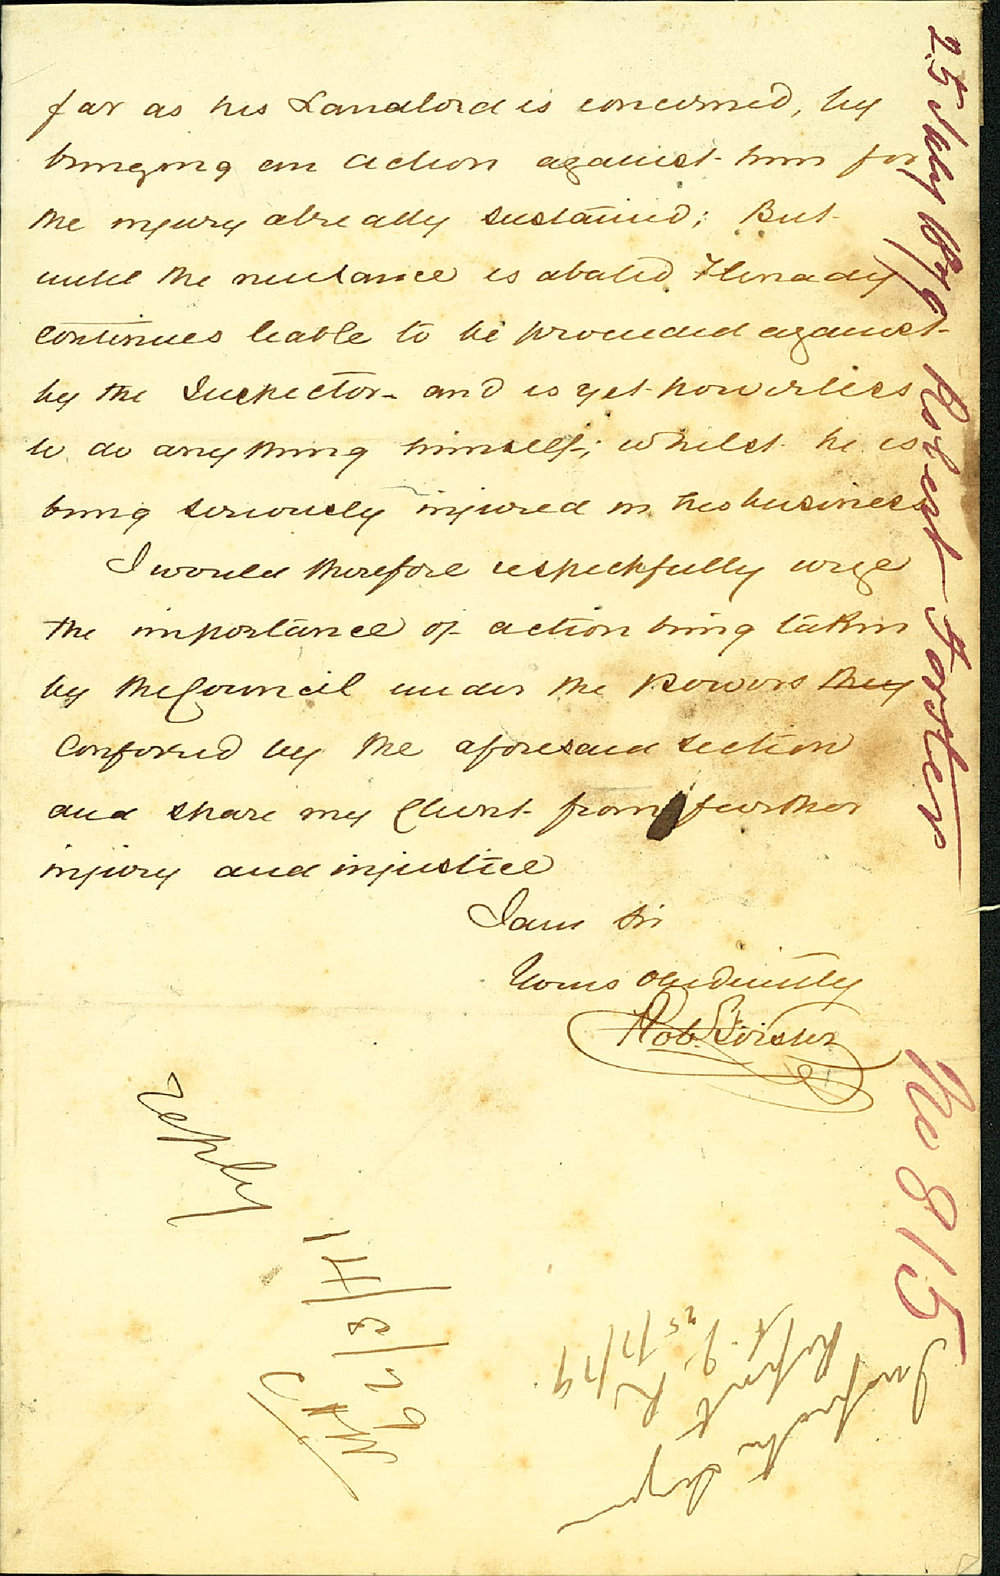 far as his Landlord is concerned, by
bringing an action against him for
the injury already sustained; But
until the nuisance is abated Flinady
continues liable to be proceeded against
by the Inspector - and is yet powerless
to do anything himself; whilst he is
being seriously injured in his business
I would therefore respectfully urge
the importance of action being taken
by the Council under the powers they
conferred by the aforesaid section
and spare my Client from further
injury and injustice
I am Sir
Yours obediently
Rob. Forster
25 July 1879 Robert Forster
No 815
reply
14/8/79
CHW
Inspector
Report
25/7/79